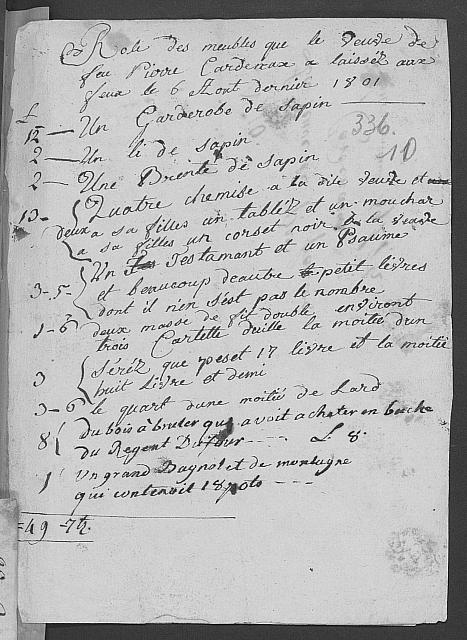 Role des meubles que le veuve de
feu Pierre Cardenaux a laissèz aux
feux le 6 Aout dernier 1801
L
12 — Un Garderobe de sapin
336.
2 — Un li de sapin
10
2 — Une Brente de sapin
13 - Quatre chemise a la dite veuve et
deux a sa filles un tabléz et un mouchar
a sa filles un corset noir a la veuve
Un Testamant et un Psaume
3 - 5 et beaucoup deautre petit livres
dont il n'en s'èst pas le nombre
1 - 6 deux masse de fil double environt
trois Cartette deuille la moitié dun
3 Séréz que peset 17 livre et la moitié
huit livre et demi
3 - 6 le quart dune moitié de Lard
8 du bois a bruler qu'avoit achater en buche
du Regent Dufour - - - - L. 8.
1 un grand Bagnolet de montagne
qui contenoit 18 pots - - -
= 49 - 7½.